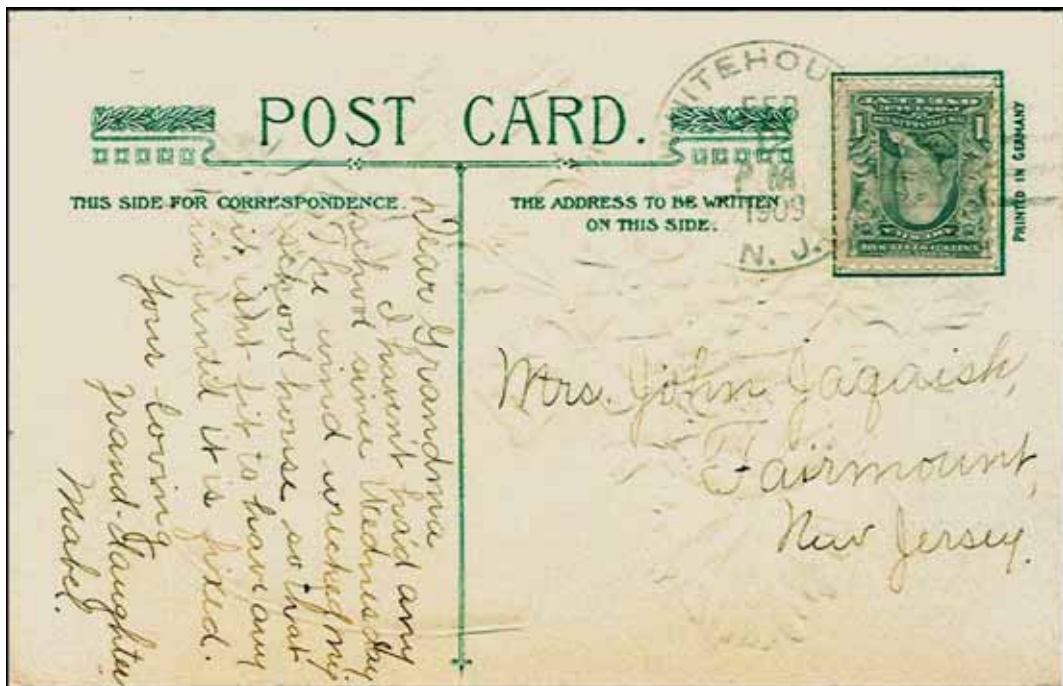 POST CARD.
THIS SIDE FOR CORRESPONDENCE.
THE ADDRESS TO BE WRITTEN
ON THIS SIDE.
PRINTED IN GERMANY
WHITEHOU
FEB
P M
1909
N. J.
1 1
Dear Grandma
I havent had any
school since Wednesday
The wind wrecked my
school house so that
it isnt fit to have any
in until it is fixed.
Your loving
Grand-daughter
Mabel.
Mrs. John
Fairmount,
New Jersey.